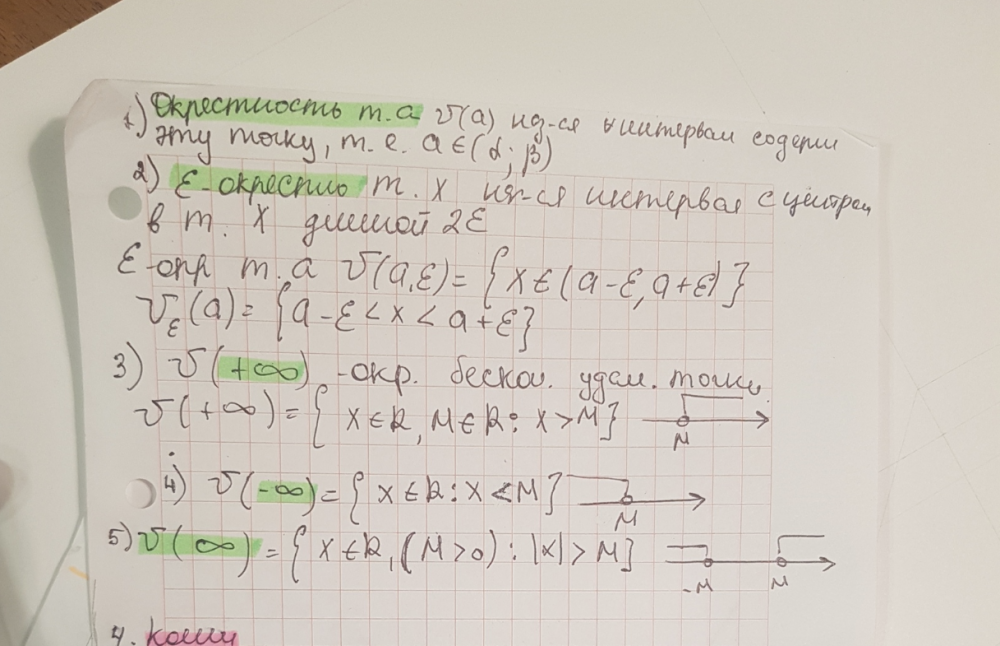 1) Окрестность т. а V(a) наз-ся ∀ интервал содерж
эту точку, т. е. a ∈ (α; β)
2) ε-окрестно т. X наз-ся интервал с центром
в т. X длиной 2ε
ε-окр т. а V(a,ε) = {x ∈ (a-ε, a+ε)}
Vε(a) = {a-ε < x < a+ε}
3) V(+∞) -окр. бескон. удал. точки
V(+∞) = { x ∈ R, M ∈ R : x > M}
M
4) V(-∞) = { x ∈ R : x < M}
M
5) V(∞) = { x ∈ R, (M > 0) : |x| > M}
-M M
4. Коши